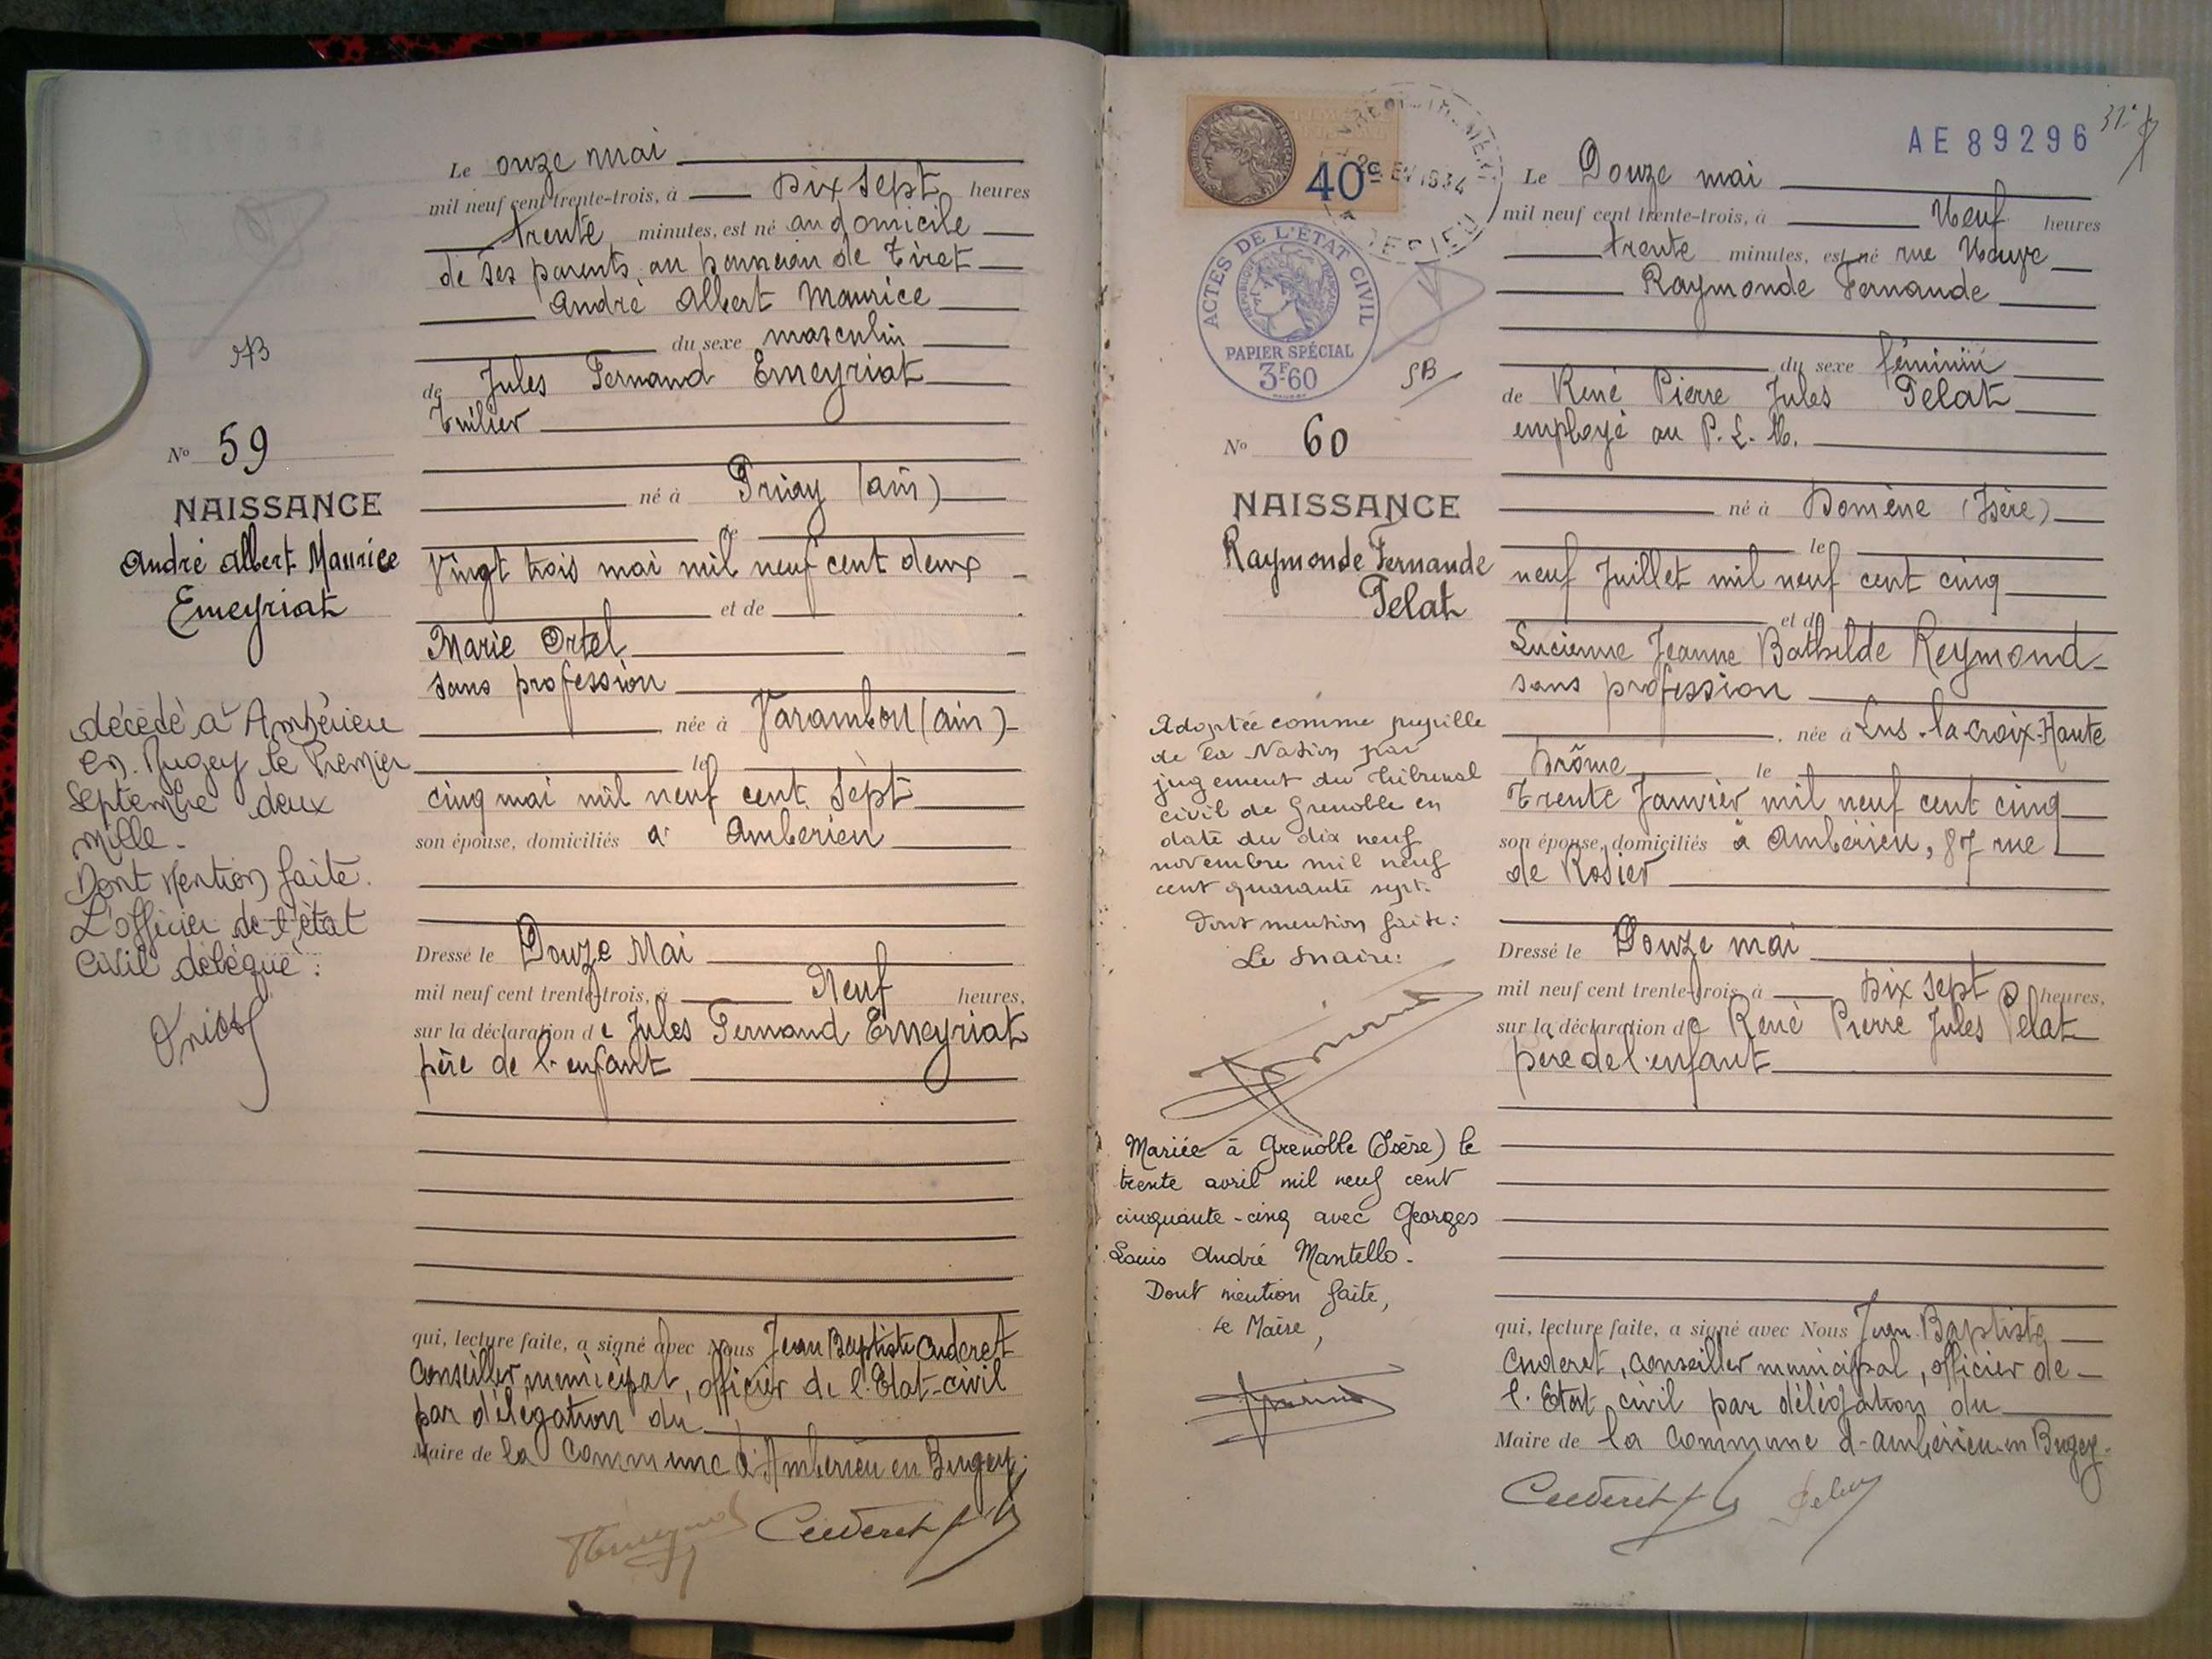 Le onze mai
mil neuf cent trente-trois, à Dix sept heures
trente minutes, est né au domicile
de ses parents, au hameau de Tiret
André Albert Maurice
du sexe masculin
de Jules Fernand Emeyriat
Tuilier
né à Priay (ain)
le
Vingt trois mai mil neuf cent deux
et de
Marie Ortel
sans profession
née à Varambon (ain)
le
cinq mai mil neuf cent sept
son épouse, domiciliés à Ambérieu
Dressé le Douze Mai
mil neuf cent trente-trois, à Neuf heures,
sur la déclaration de Jules Fernand Emeyriat
père de l'enfant
qui, lecture faite, a signé avec Nous Jean Baptiste Cuderet
Conseiller municipal, officier de l'Etat-civil
par délégation du
Maire de la Commune d'Ambérieu en Bugey.
Cuderet
SB
No 59
NAISSANCE
André Albert Maurice
Emeyriat
décédé à Ambérieu
en Bugey le Premier
Septembre deux
mille.
Dont Mention faite.
L'officier de l'état
Civil délégué :
AE 89296
40c
ACTES DE L'ÉTAT CIVIL
PAPIER SPÉCIAL
3F60
SB
No 60
NAISSANCE
Raymonde Fernande
Pelat
Adoptée comme pupille
de la Nation par
jugement du tribunal
civil de Grenoble en
date du dix neuf
novembre mil neuf
cent quarante sept.
Dont mention faite :
Le Maire :
Mariée à Grenoble (Isère) le
trente avril mil neuf cent
cinquante-cinq avec Georges
Louis André Mantello.
Dont mention faite,
Le Maire,
Le Douze mai
mil neuf cent trente-trois, à Neuf heures
trente minutes, est né rue Neuve
Raymonde Fernande
du sexe féminin
de René Pierre Jules Pelat
employé au P. L. M.
né à Domène (Isère)
le
neuf Juillet mil neuf cent cinq
et de
Lucienne Jeanne Bathilde Reymond
sans profession
née à Lus-la-Croix-Haute
Drôme le
Trente Janvier mil neuf cent cinq
son épouse, domiciliés à Ambérieu, 87 rue
de Rosier
Dressé le Douze mai
mil neuf cent trente-trois, à Dix sept heures,
sur la déclaration de René Pierre Jules Pelat
père de l'enfant
qui, lecture faite, a signé avec Nous Jean Baptiste
Cuderet, Conseiller municipal, officier de
l'Etat civil par délégation du
Maire de la Commune d'Ambérieu en Bugey.
Cuderet Pelat